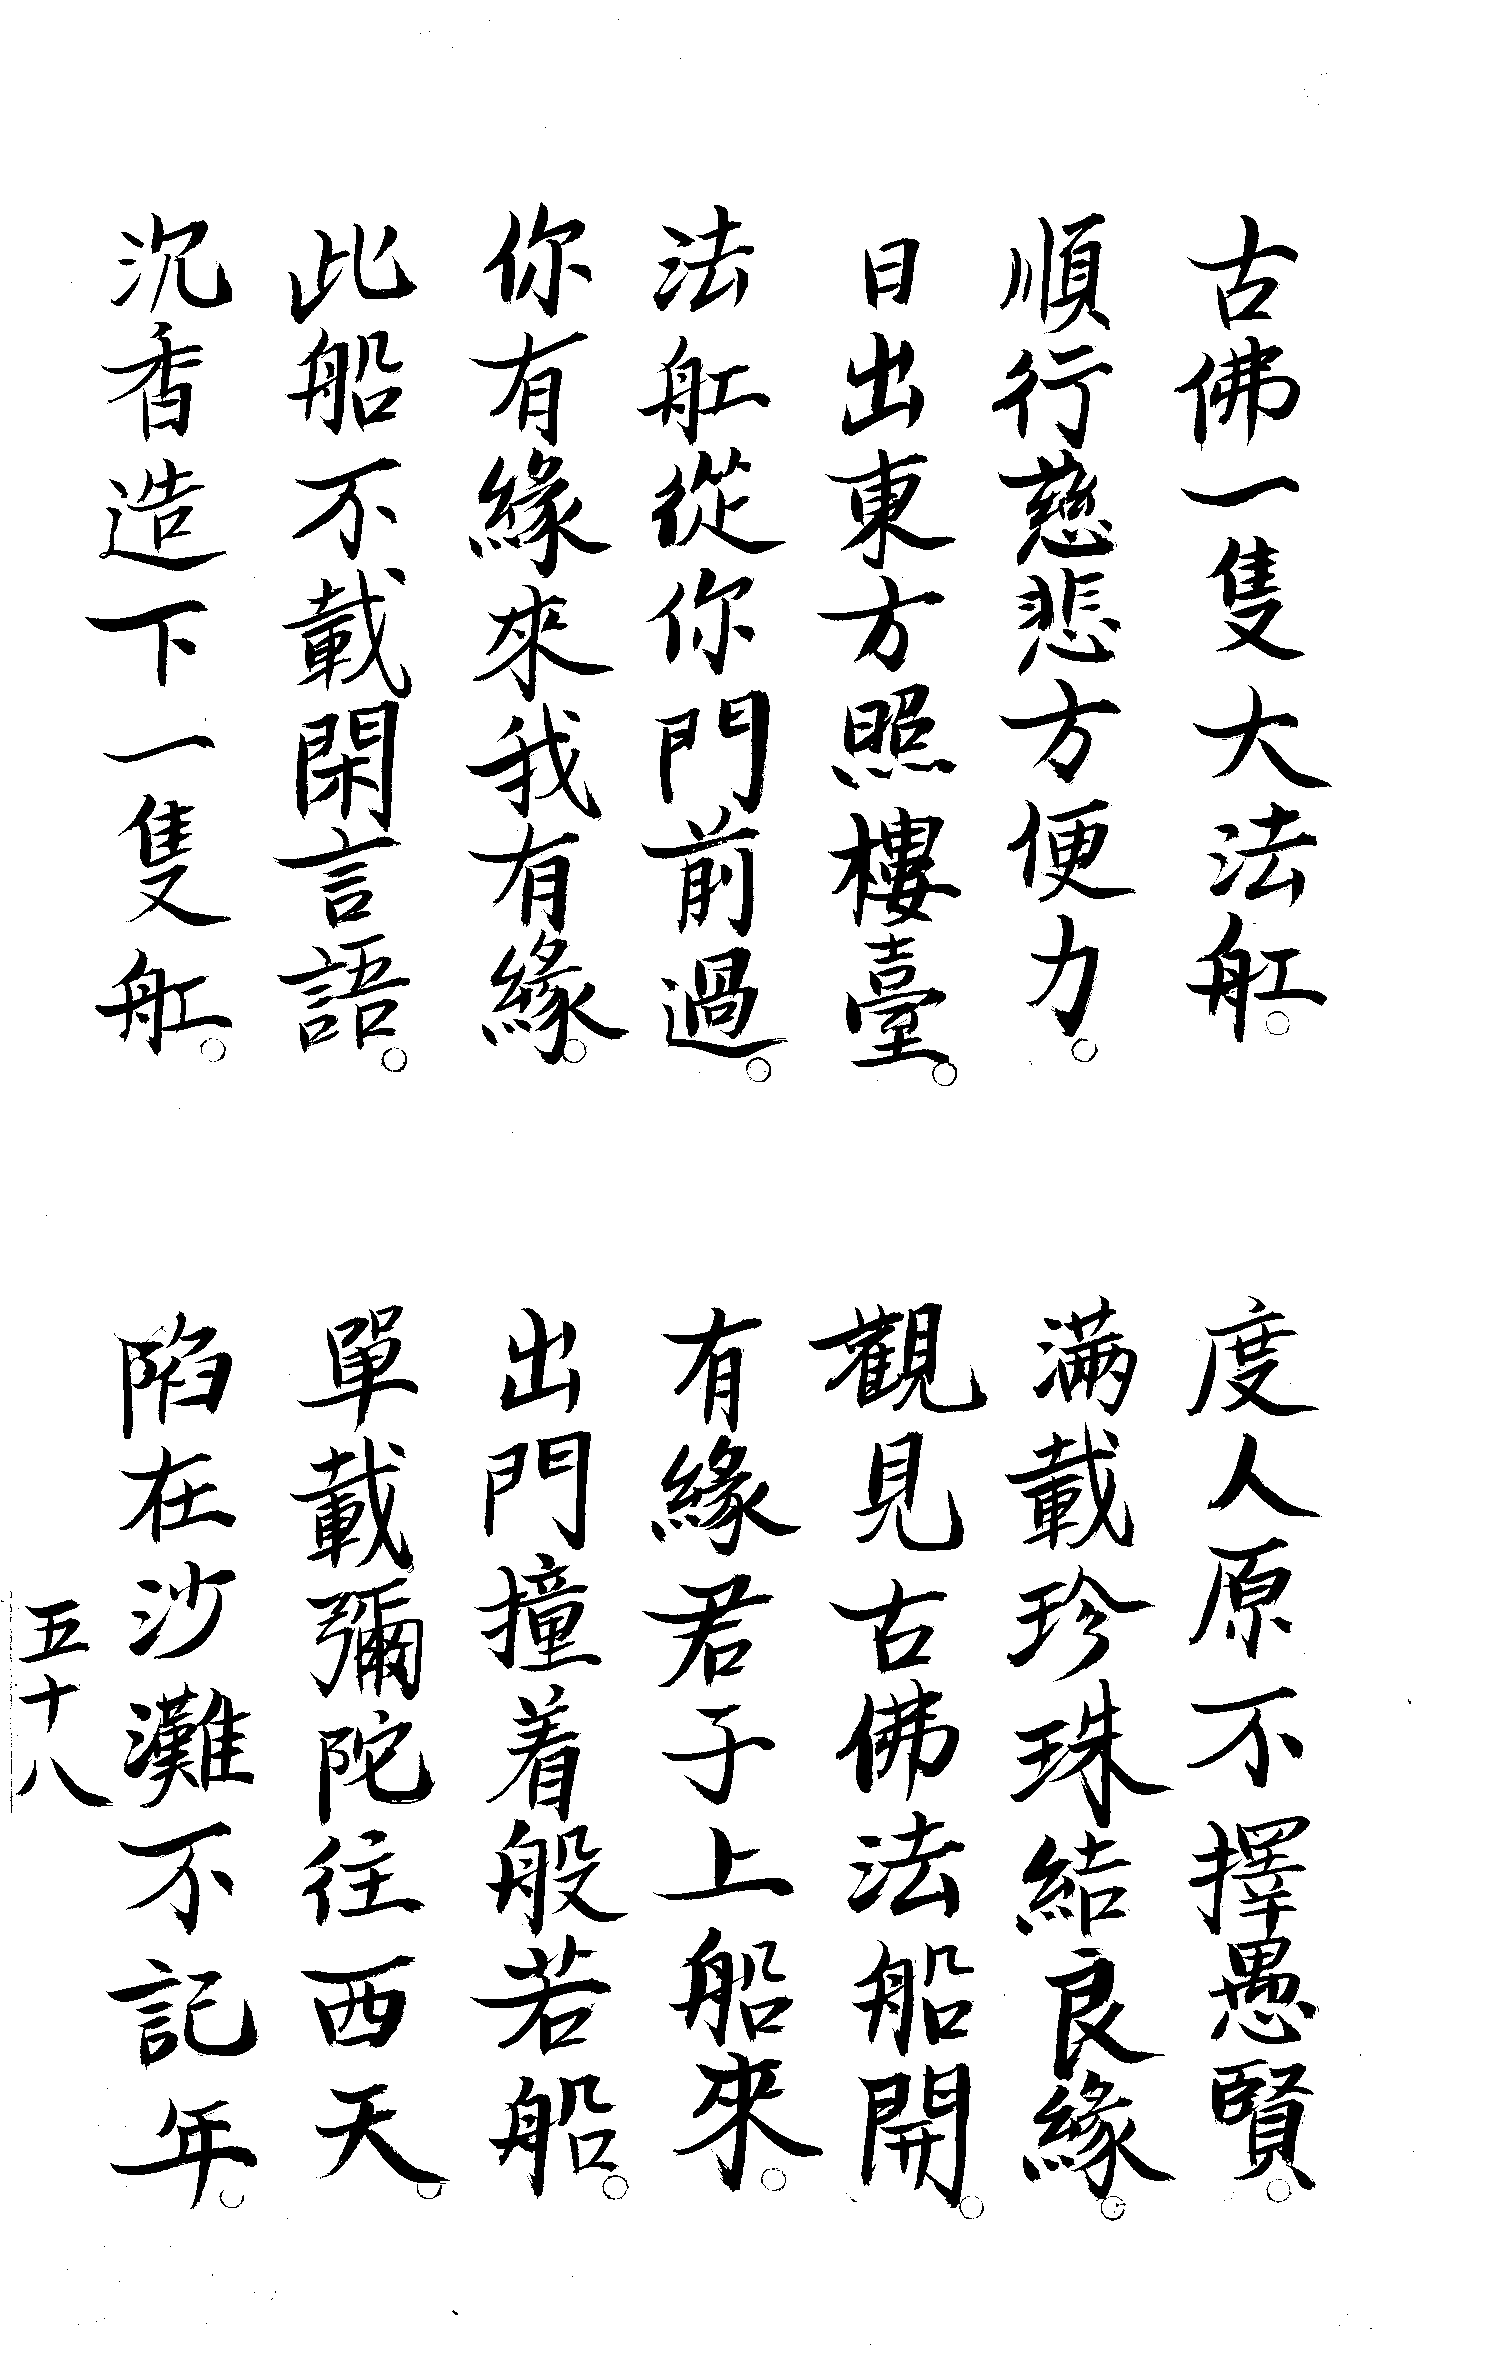 古佛一隻大法舡。
度人原不擇愚賢。
順行慈悲方便力。
滿載珍珠結良緣。
日出東方照樓臺。
觀見古佛法船開。
法舡從你門前過。
有緣君子上船來。
你有緣來我有緣。
出門撞着般若船。
此船不載閑言語。
單載彌陀往西天。
沉香造下一隻舡。
陷在沙灘不記年。
五十八